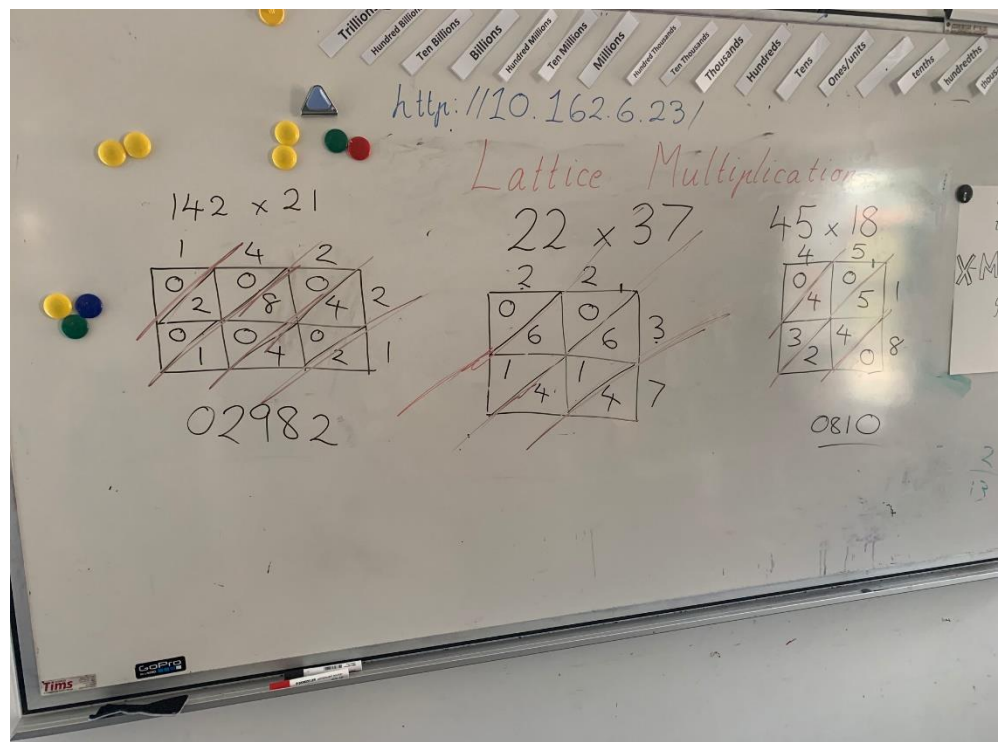 Trillions
Hundred Billions
Ten Billions
Billions
Hundred Millions
Ten Millions
Millions
Hundred Thousands
Ten Thousands
Thousands
Hundreds
Tens
Ones/units
tenths
hundredths
http://10.162.6.23/
Lattice Multiplication
142 x 21
1 4 2
0 0 0
2 8 4 2
0 0 0
1 4 2 1
02982
22 x 37
2 2
0 0
6 6 3
1 1
4 4 7
45 x 18
4 5
0 0 1
4 5
3 4
2 0 8
0810
X-M
2
13
GoPro
Tims